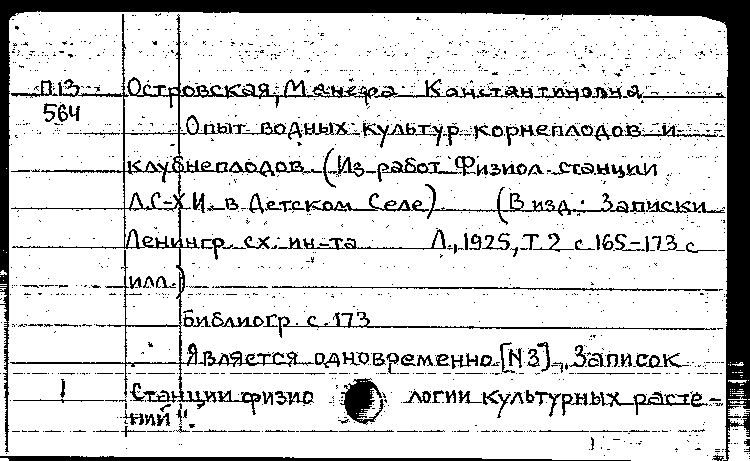 П.13 Островская, Манефа Константиновна
564
Опыт водных культур корнеплодов и
клубнеплодов (Из работ Физиол. станции
Л.С-Х.И. в Детском Селе) (В изд.: Записки
Ленингр. сх. ин-та Л., 1925, Т.2 с 165-173 с
илл.)
Библиогр. с. 173
Является одновременно [N 3] „Записок
Станции физиологии культурных расте-
ний".